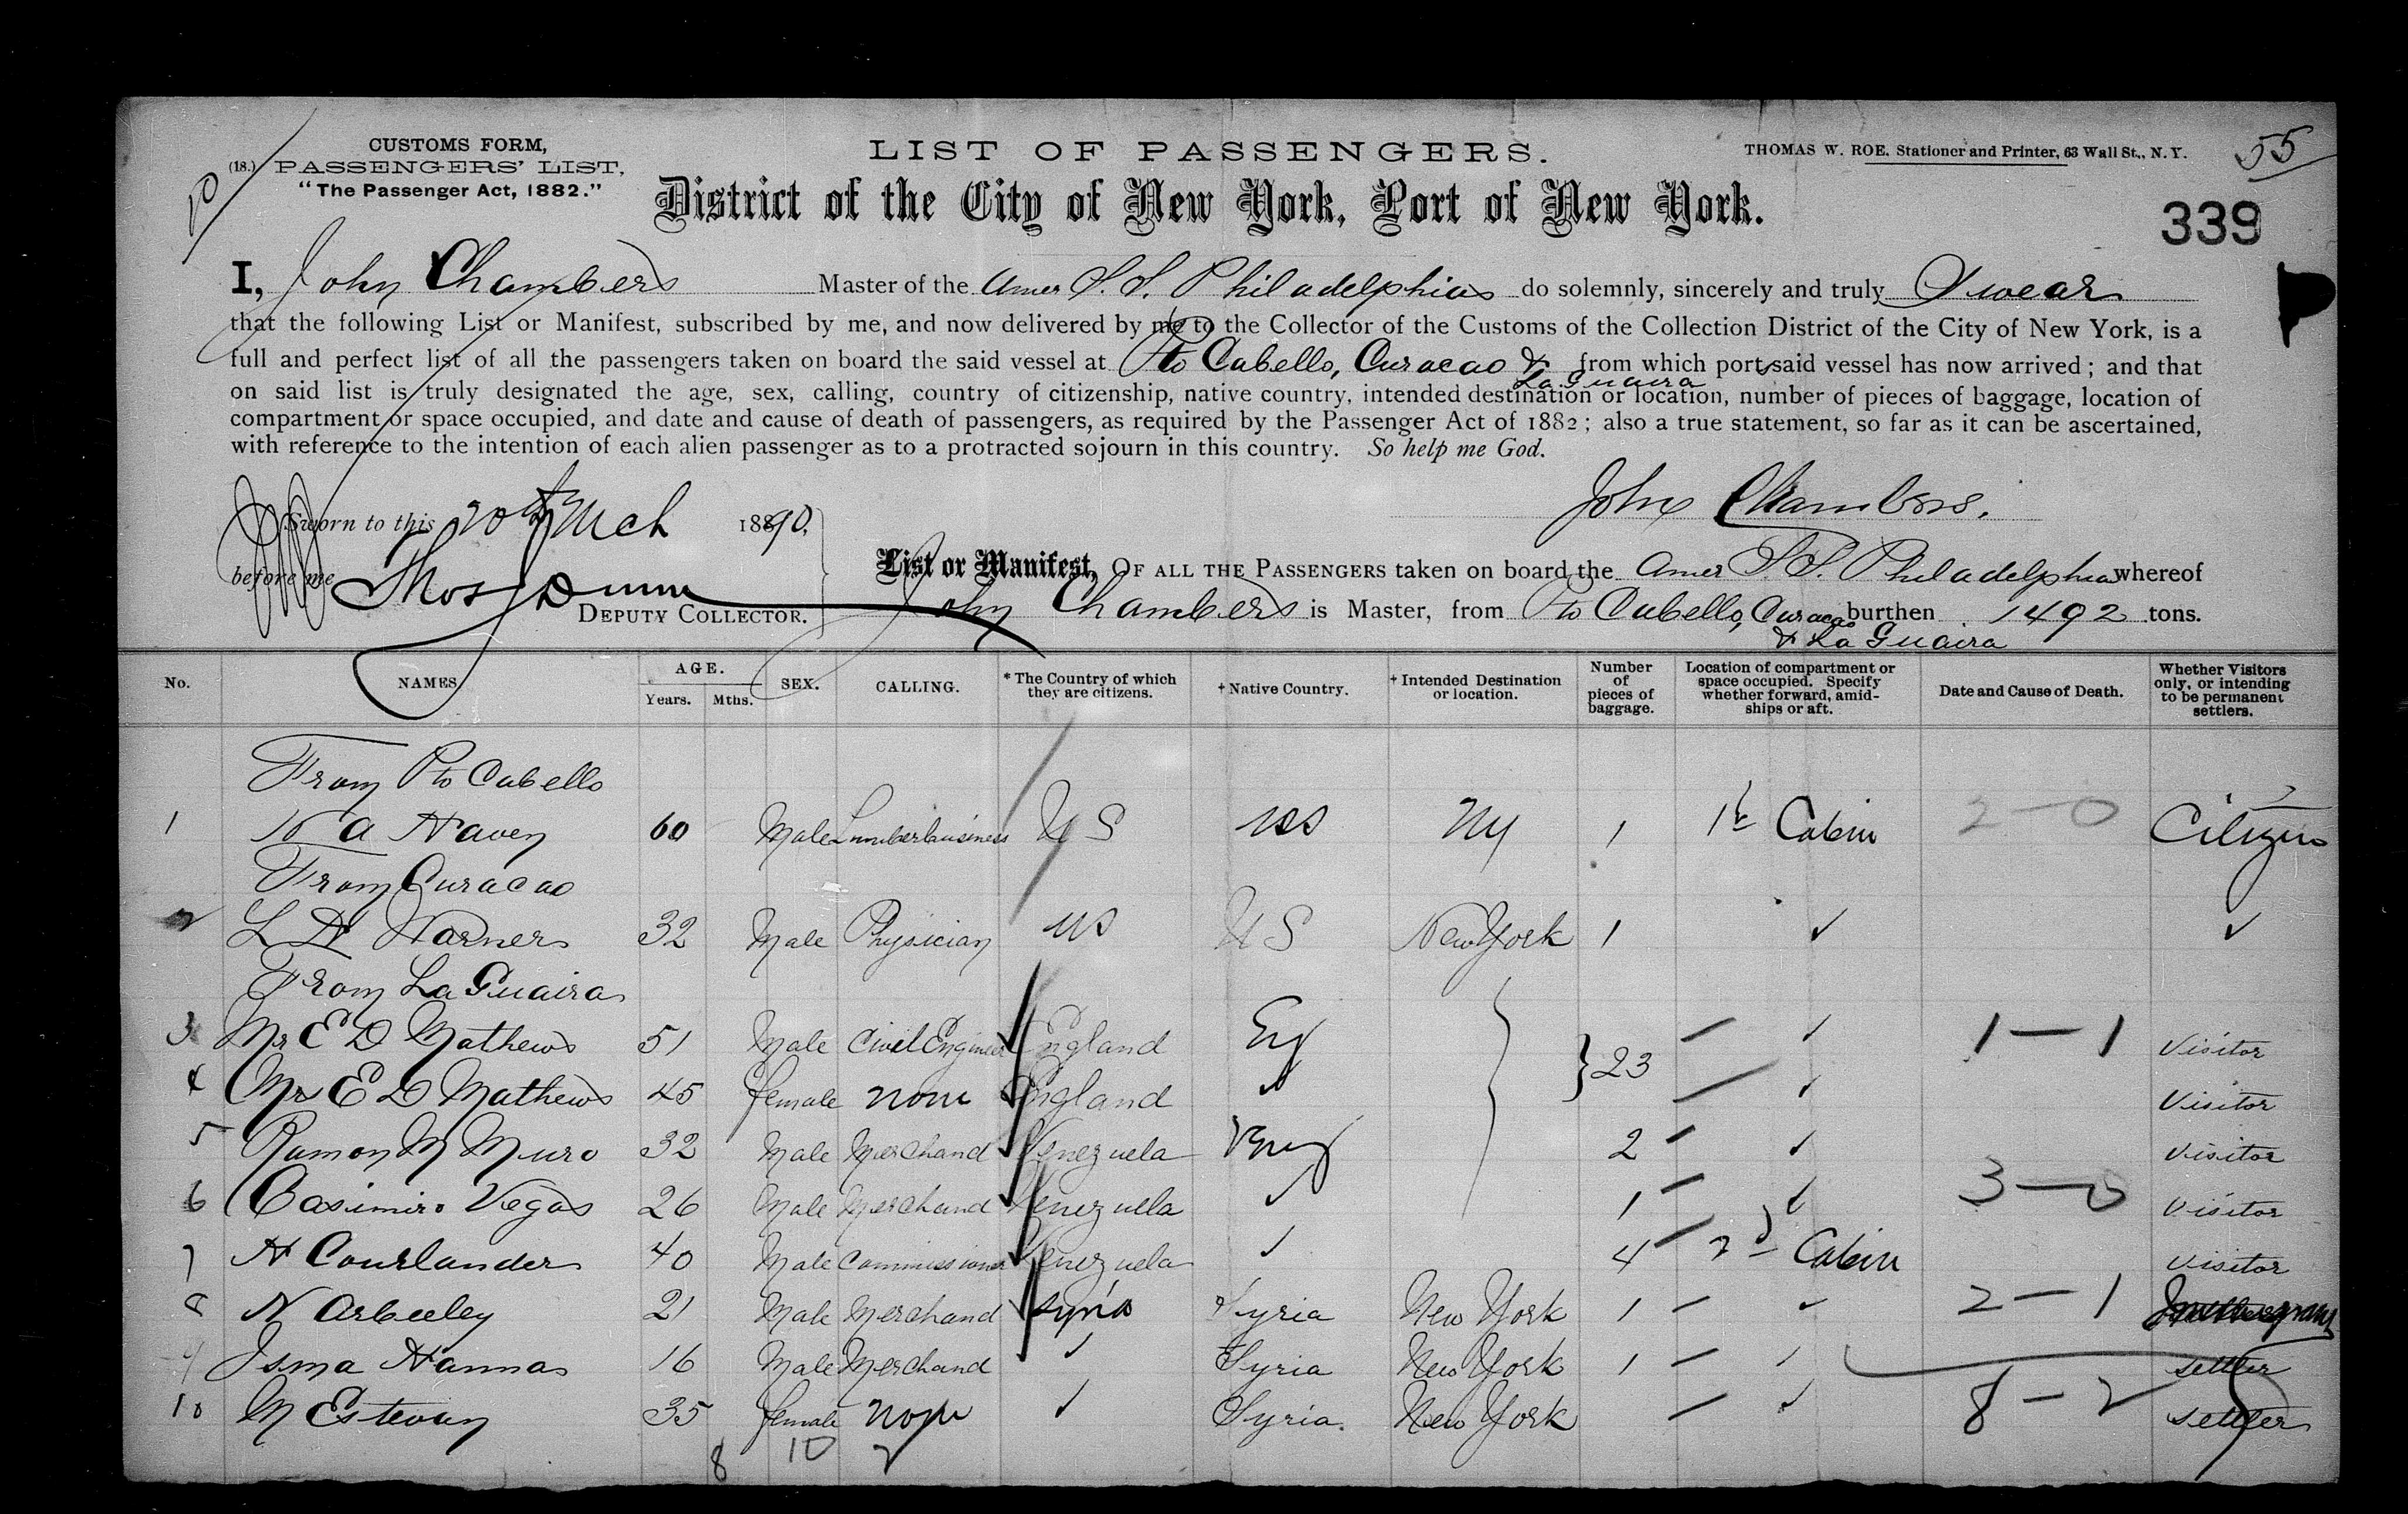 CUSTOMS FORM,
(18.) PASSENGERS' LIST,
"The Passenger Act, 1882."
LIST OF PASSENGERS.
THOMAS W. ROE. Stationer and Printer, 63 Wall St., N.Y.
55
District of the City of New York, Port of New York.
339
I, John Chambers Master of the Amer S.S. Philadelphia do solemnly, sincerely and truly Swear
that the following List or Manifest, subscribed by me, and now delivered by me to the Collector of the Customs of the Collection District of the City of New York, is a
full and perfect list of all the passengers taken on board the said vessel at Pto Cabello, Curacao & La Guaira from which ports said vessel has now arrived; and that
on said list is truly designated the age, sex, calling, country of citizenship, native country, intended destination or location, number of pieces of baggage, location of
compartment or space occupied, and date and cause of death of passengers, as required by the Passenger Act of 1882; also a true statement, so far as it can be ascertained,
with reference to the intention of each alien passenger as to a protracted sojourn in this country. So help me God.
John Chambers.
Sworn to this 20th Mch 1890.
before me Thos Dunn
DEPUTY COLLECTOR.
List or Manifest, OF ALL THE PASSENGERS taken on board the Amer S.S. Philadelphia whereof
John Chambers is Master, from Pto Cabello, Curacao & La Guaira burthen 1492 tons.
No. NAMES. AGE. Years. Mths. SEX. CALLING. * The Country of which they are citizens. † Native Country. † Intended Destination or location. Number of pieces of baggage. Location of compartment or space occupied. Specify whether forward, amidships or aft. Date and Cause of Death. Whether Visitors only, or intending to be permanent settlers.
From Pto Cabello
1 A Haven 60 Male Lumber business US US NY 1 1st Cabin 2-0 Citizen
From Curacao
2 L H Warner 32 Male Physician US US New York 1 ✓ ✓
From La Guaira
3 Mr E D Mathews 51 Male Civil Engineer England Eng 23 ✓ 1-1 Visitor
4 Mrs E D Mathews 45 female none England ✓ ✓ Visitor
5 Ramon M Muro 32 Male Merchand Venezuela Venez 2 ✓ Visitor
6 Casimiro Vegas 26 Male Merchand Venezuela ✓ 1 ✓ 3-0 Visitor
7 H Courlander 40 Male Commissioner Venezuela ✓ 4 2d Cabin Visitor
8 N Arbeeley 21 Male Merchand Syria Syria New York 1 ✓ 2-1
9 Isma Hannas 16 Male Merchand ✓ Syria New York 1 ✓ settler
10 M Estevan 35 female none ✓ Syria. New York ✓ 8-2 settler
8 10 2